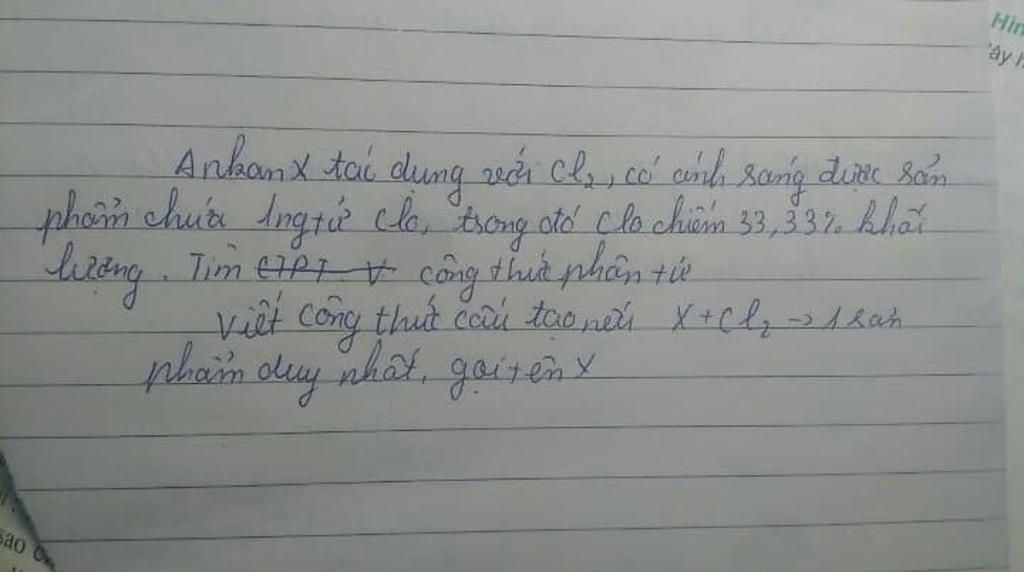 Ankan X tác dụng với Cl2, có ánh sáng được sản
phẩm chứa 1 ng tử Clo, trong đó Clo chiếm 33,33% khối
lượng. Tìm CTPT V công thức phân tử
Viết công thức cấu tạo nếu X + Cl2 → 1 sản
phẩm duy nhất, gọi tên X
Hìn
sao